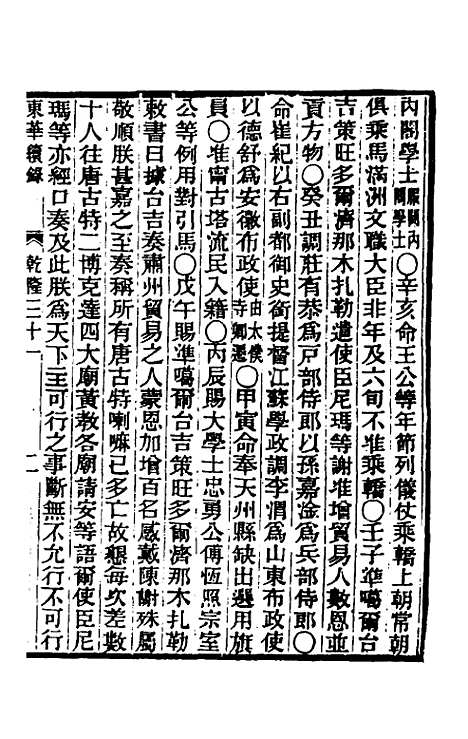 內閣學士嚴閣內閣學士○辛亥命王公等年節列儀仗乘轎上朝常朝
俱乘馬滿洲文職大臣非年及六旬不准乘轎○壬子準噶爾台
吉策旺多爾濟那木扎勒遣使臣尼瑪等謝准增貿易人數恩並
貢方物○癸丑調莊有恭爲戶部侍郎以孫嘉淦爲兵部侍郎○
命崔紀以右副都御史銜提督江蘇學政調李渭爲山東布政使
以德舒爲安徽布政使由太僕寺卿遷○甲寅命奉天州縣缺出選用旗
員○准甯古塔流民入籍○丙辰賜大學士忠勇公傅恆照宗室
公等例用對引馬○戊午賜準噶爾台吉策旺多爾濟那木扎勒
敕書曰據台吉奏肅州貿易之人蒙恩加增百名感戴陳謝殊屬
敬順朕甚嘉之至奏稱所有唐古特喇嘛已多亡故懇每次差數
十人往唐古特二博克達四大廟黃教各廟請安等語爾使臣尼
瑪等亦經口奏及此朕爲天下主可行之事斷無不允行不可行
東華續錄
乾隆三十一
二